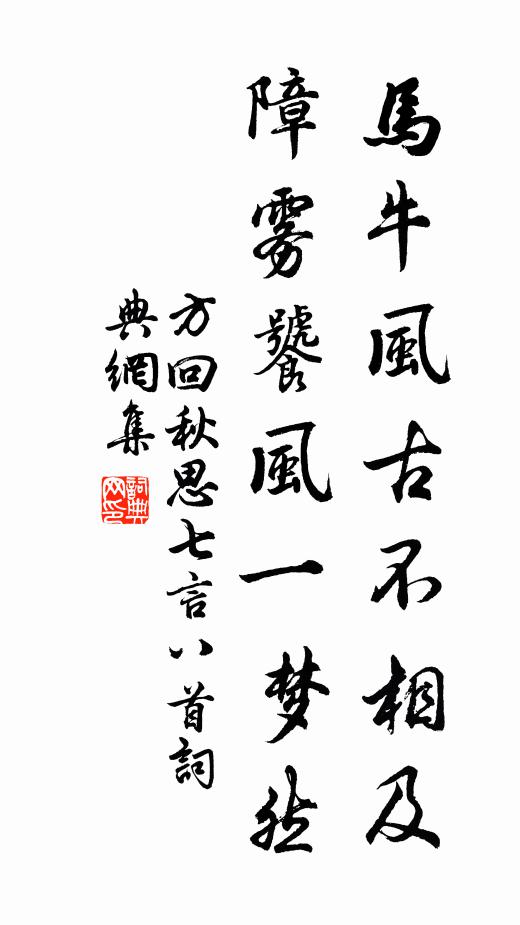 馬牛風古不相及
障雾饕風一梦然
方回秋思七言八首詞
典網集
詞典网印